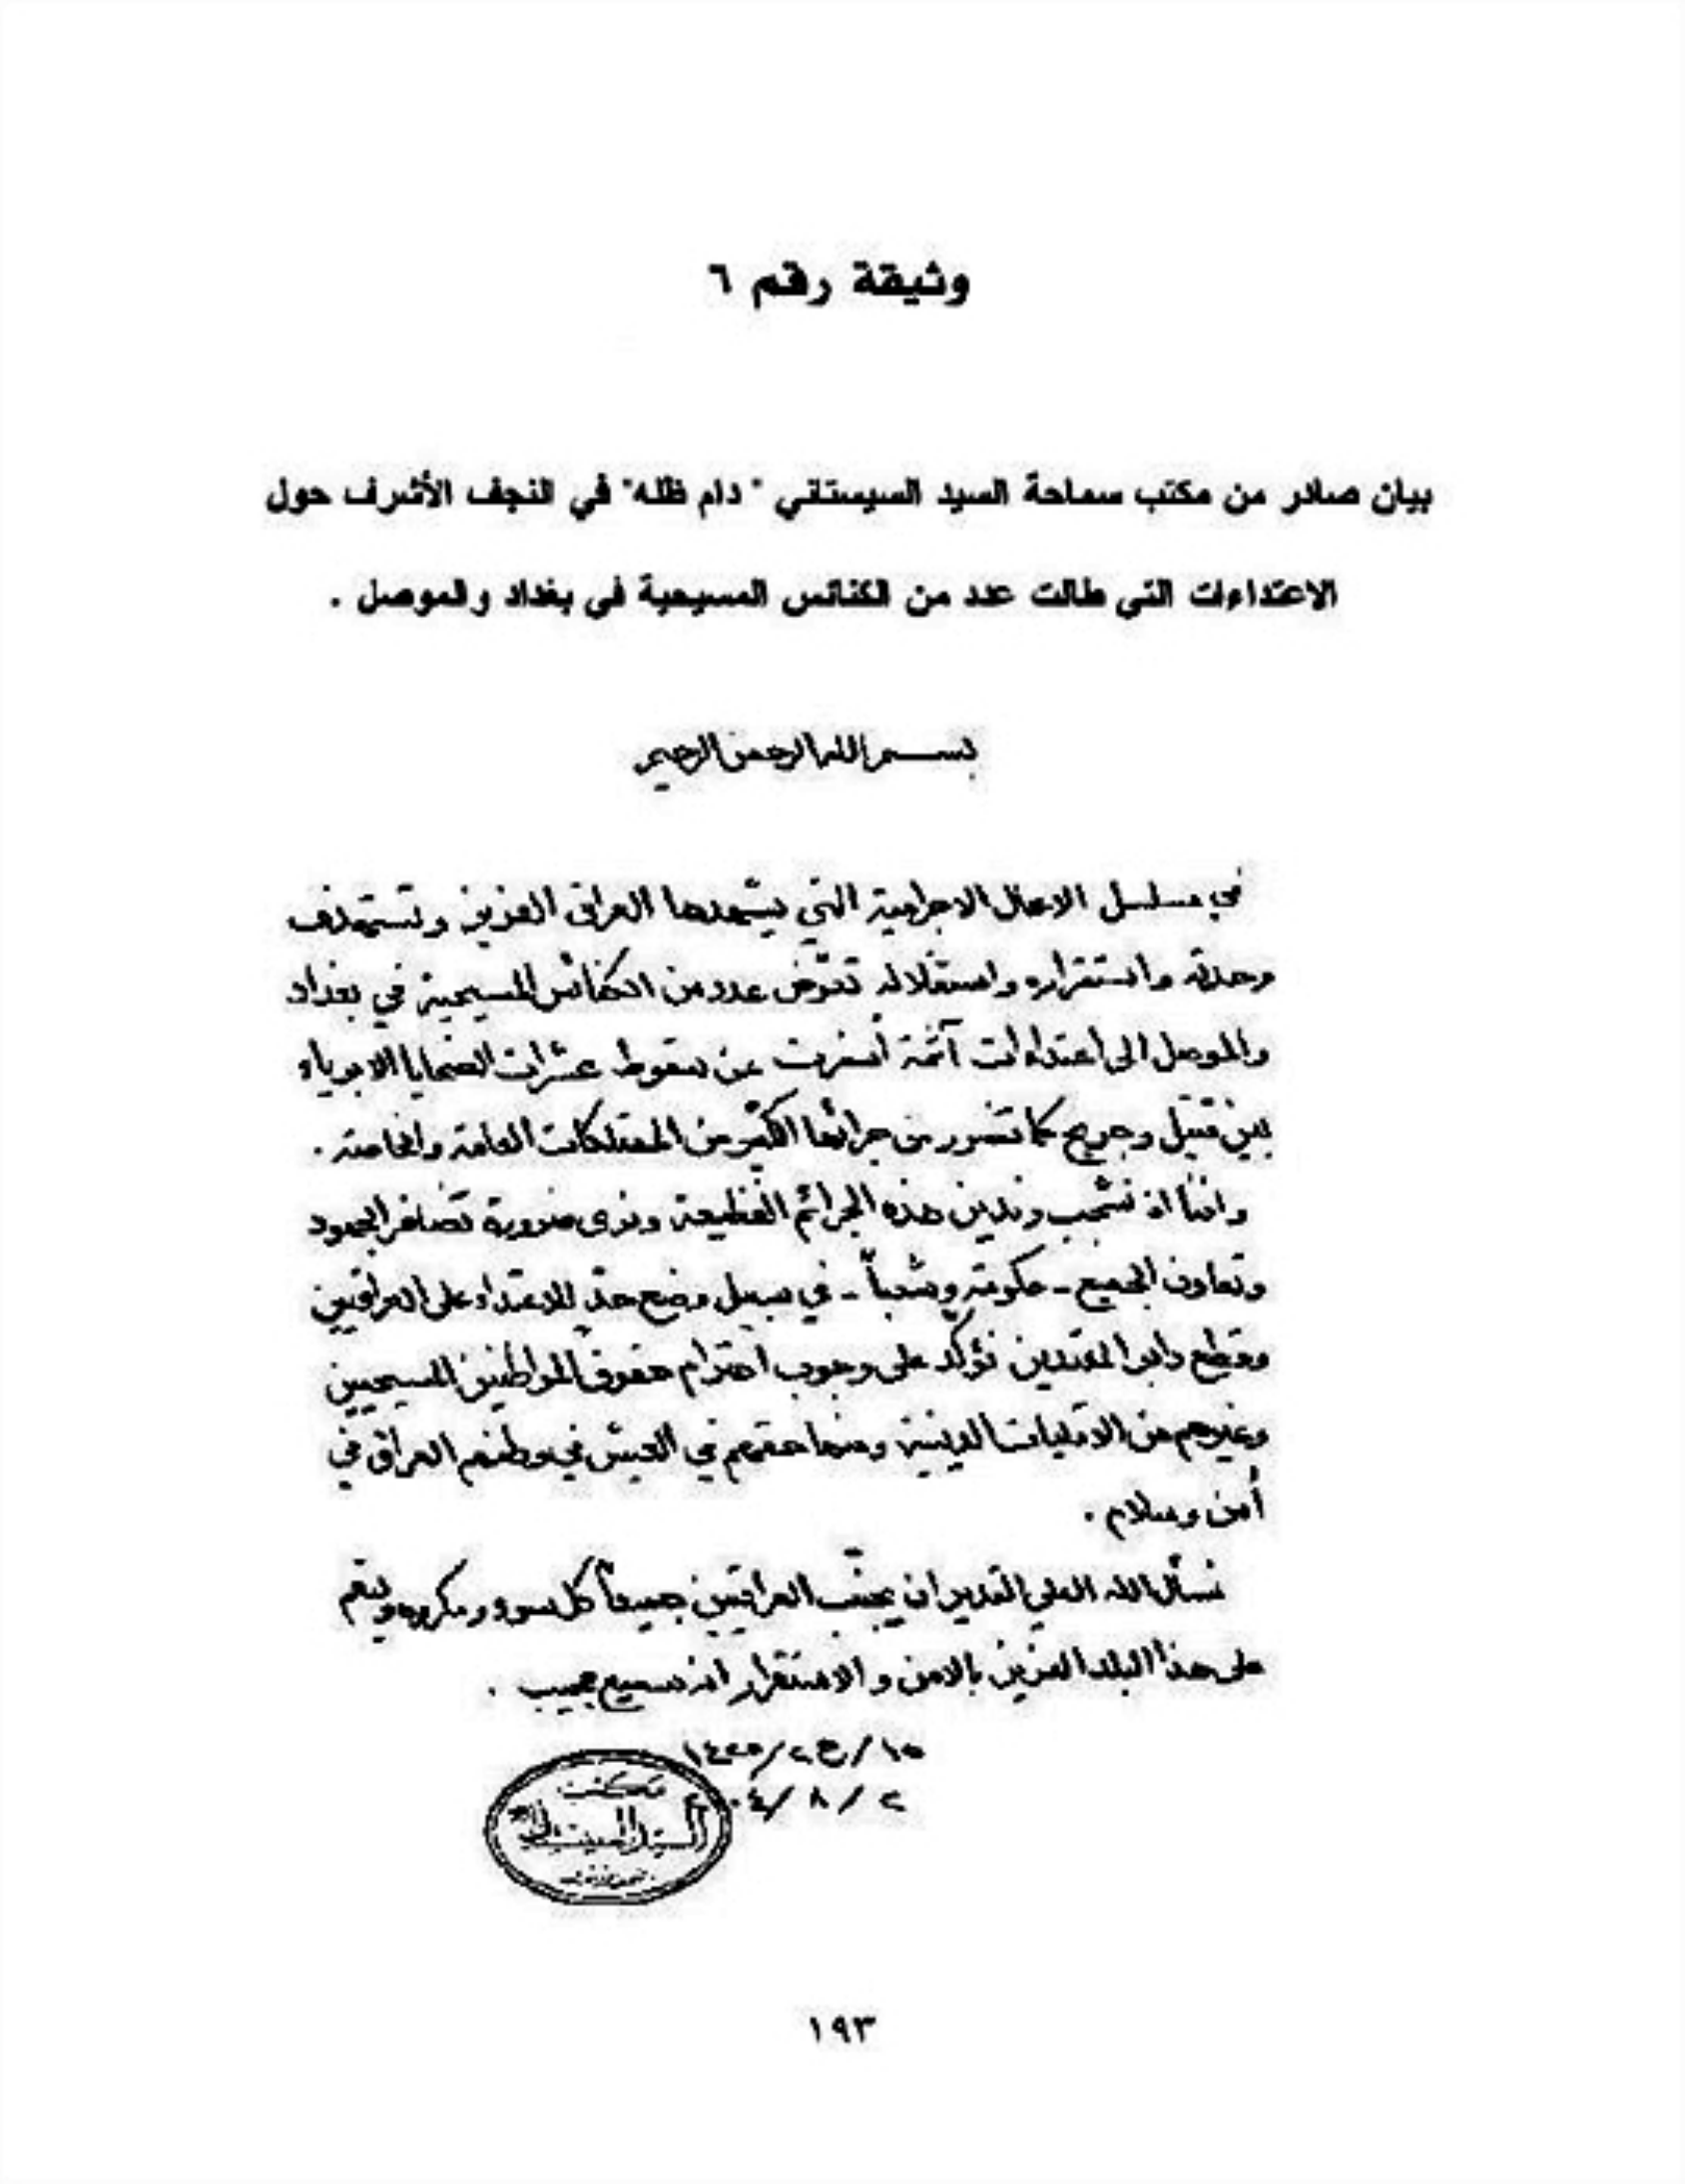 وثيقة رقم ٦
بيان صادر من مكتب سماحة السيد السيستاني " دام ظله" في النجف الأشرف حول
الاعتداءات التي طالت عدد من الكنائس المسيحية في بغداد والموصل .
بسم الله الرحمن الرحيم
في مسلسل الاعمال الاجرامية التي يشهدها العراق العزيز وتستهدف
وحدته واستقراره واستقلاله تعرّض عدد من الكنائس المسيحية في بغداد
والموصل الى اعتداءات آثمة أسفرت عن سقوط عشرات الضحايا الابرياء
بين قتيل وجريح كما تضرر من جرائها الكثير من الممتلكات العامة والخاصة .
واننا اذ نشجب وندين هذه الجرائم الفظيعة ونرى ضرورة تضافر الجهود
وتعاون الجميع - حكومة وشعباً - في سبيل وضع حدّ للاعتداء على العراقيين
وقطع دابر المعتدين نؤكّد على وجوب احترام حقوق المواطنين المسيحيين
وغيرهم من الاقليات الدينية ومنها حقهم في العيش في وطنهم العراق في
أمن وسلام .
نسأل الله العلي القدير ان يجنّب العراقيين جميعاً كل سوء ومكروه
على هذا البلد العزيز بالامن والاستقرار انه سميع مجيب .
١٥/ج٢/١٤٢٥
٢/٨/٢٠٠٤
مكتب
السيد السيستاني
١٩٣